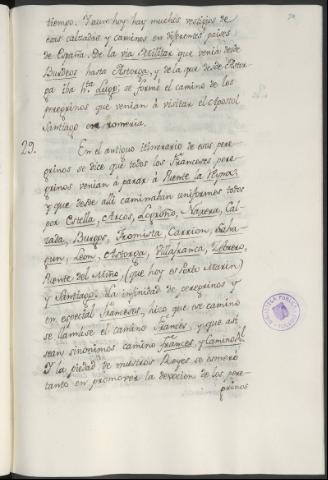 tiempo. Y aun hoy hay muchos vestigios de
esas calzadas y caminos en diferentes países
de España. De la via Militar que venía desde
Burdeos hasta Astorga, y de la que desde Astor-
ga iba hta. Lugo; se formó el camino de los
peregrinos que venían à visitar el Apostol
Santiago en romeria.
29. En el antiguo itinerario de esos pere-
grinos se dice que todos los Franceses pere-
grinos venian à parar à Puente la Reyna,
y que desde alli caminaban uniformes todos
por Estella, Arcos, Logroño, Naxera, Cal-
zada, Burgos, Fromista, Carrion, Saha-
gun, Leon, Astorga, Villafranca, Zebrero,
Puente del Miño, (que hoy es Porto Marin)
y Santiago. La infinidad de peregrinos y
en especial Franceses, hizo que ese camino
se llamase el camino Francés, y que asi
sean sinónimos camino francés, y camino
Y la piedad de nuestros Reyes se esmeró
tanto en promover la devocion de los pere-
grinos